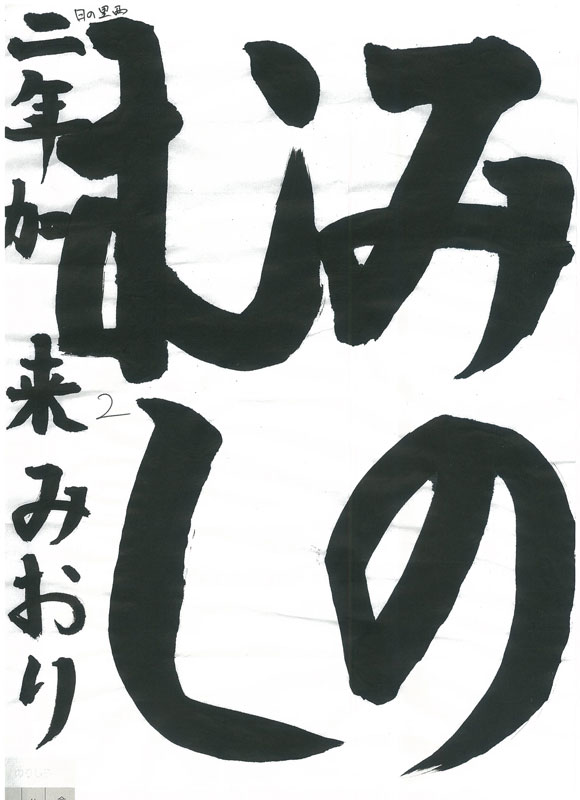 みの
むし
二年 加来 みおり
日の里西
2